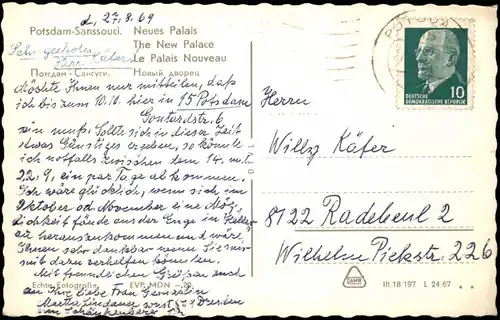 d. 27.8.69
Potsdam-Sanssouci. Neues Palais
The New Palace
Le Palais Nouveau
Потсдам-Сансуси. Новый дворец
Sehr geehrter
Herr Käfer!
Möchte Ihnen nur mitteilen, daß
ich bis zum 10.10. hier in 15 Potsdam
Gontardstr. 6
sein muß. Sollte sich in dieser Zeit
etwas Günstiges ergeben, so könnte
ich notfalls zwischen dem 14. und
22.9. ein paar Tage abkommen.
Ich wäre glücklich, wenn sich im
Oktober od. November eine Mög-
lichkeit fände aus der Enge in
herauszukommen und wär
Ihnen sehr dankbar wenn Sie
mit dazu verhelfen könnten.
Mit freundlichen Grüßen auch
an Ihre liebe Frau Gemahlin
Martha Lindauer sonst Dresden
Echte Fotografie EVP MDN –.20
POTSDAM
DEUTSCHE
DEMOKRATISCHE REPUBLIK
10
Herrn
Willy Käfer
8122 Radebeul 2
Wilhelm Pieckstr. 226
III.18 197 L 24/67